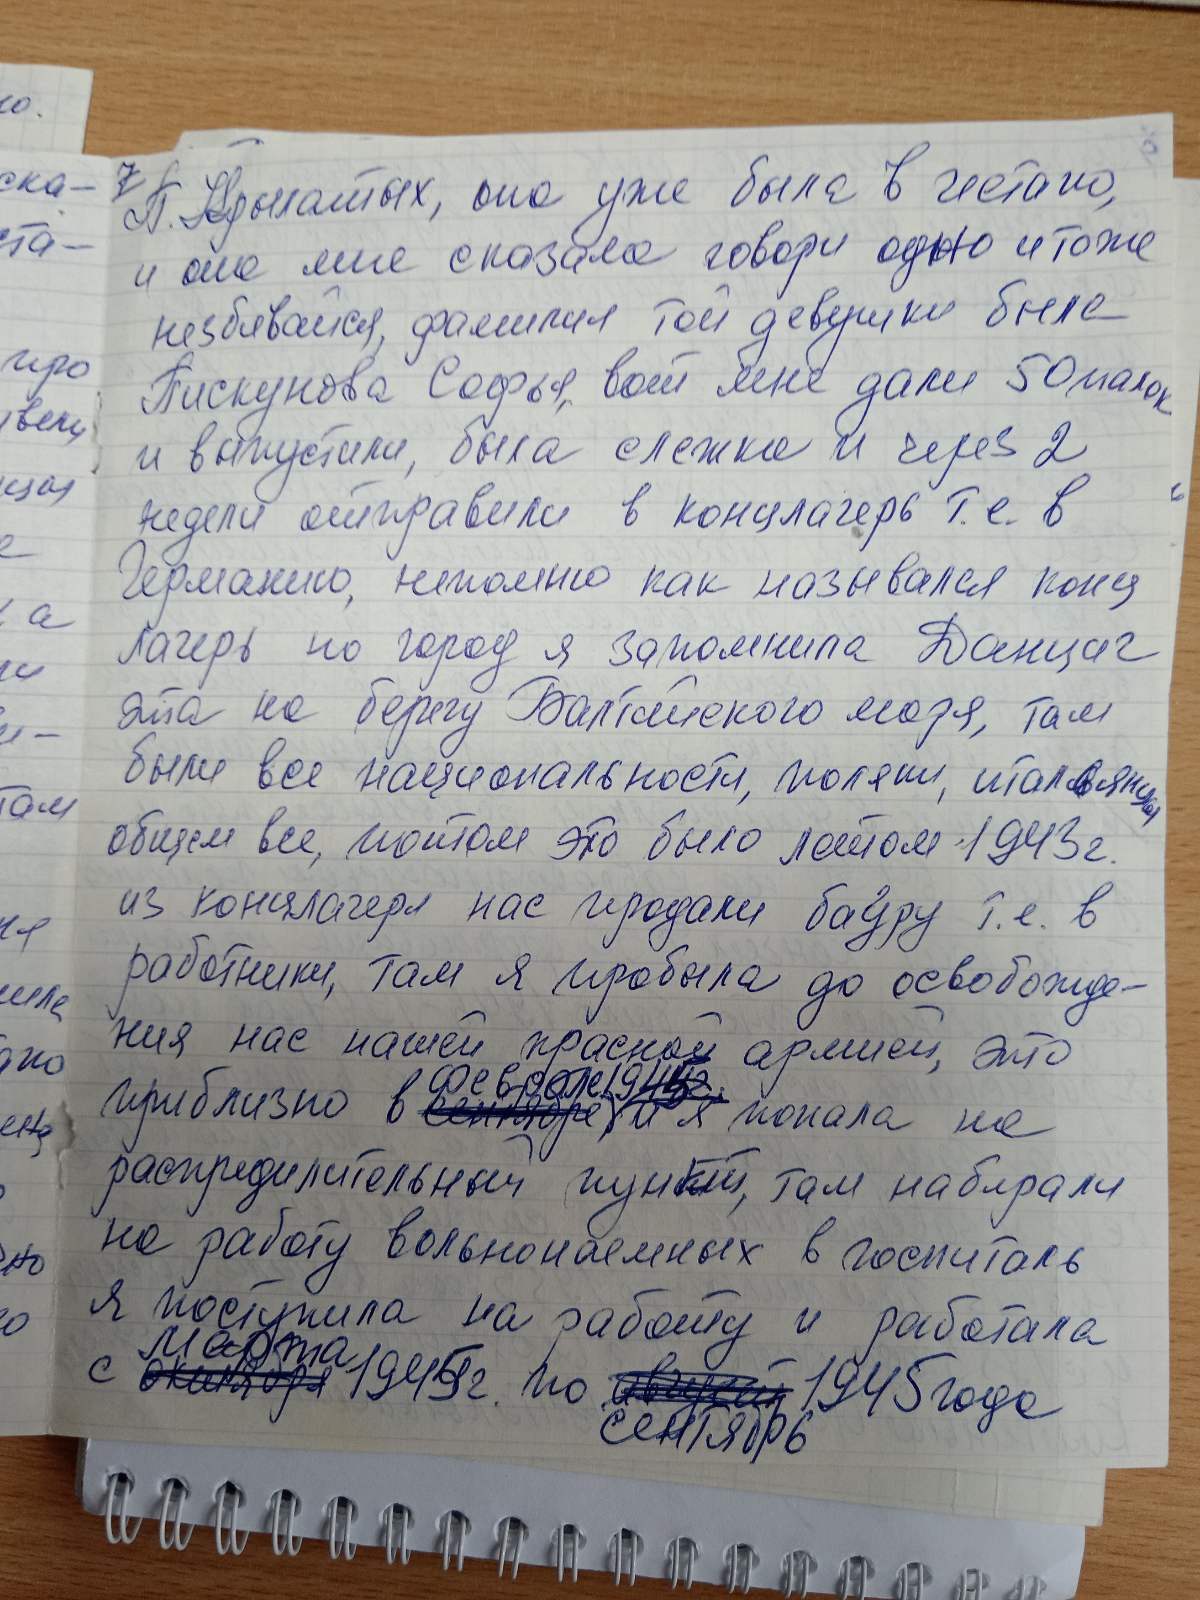 но.
ска-
ста-
про
ривели
а
ли
там
ня
тано
но
7
П. Крылатых, она уже была в гестапо,
и она мне сказала говори одно и тоже
незбивайся, фамилия той девушки была
Пискунова Софья, вот мне дали 50 палок
и выпустили, была слежка и через 2
недели отправили в концлагерь т.е. в
Германию, непомню как назывался конц
лагерь но город я запомнила Данциг
эта на берегу Балтийского моря, там
были все национальности, поляки, итальянцы
общем все, потом это было летом 1943г.
из концлагеря нас продали бауру т.е. в
работники, там я пробыла до освобожде-
ния нас нашей красной армией, это
феврале 1945г.
приблизно в сентябре, и я попала на
распредилительный пункт, там набирали
на работу вольнонаемных в госпиталь
я поступила на работу и работала
марта
с октября 1945г. по август 1945 года
сентябрь